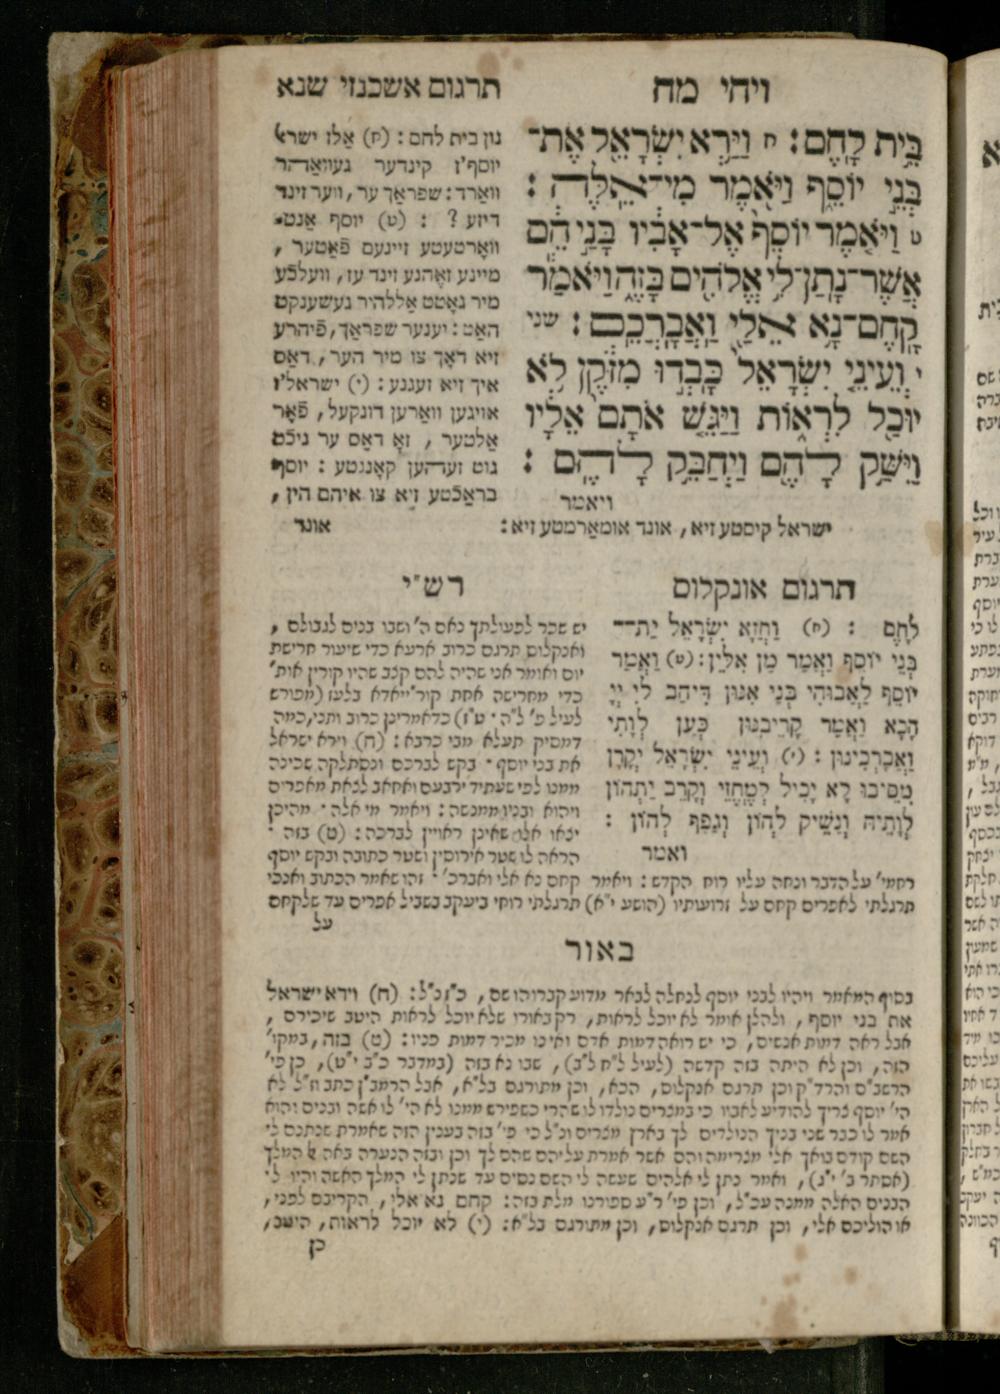 ויחי מח
תרגום אשכנזי שנא
בֵּית לָחֶם׃ ח וַיַּרְא יִשְׂרָאֵל אֶת־
בְּנֵי יוֹסֵף וַיֹּאמֶר מִי־אֵלֶּה׃
ט וַיֹּאמֶר יוֹסֵף אֶל־אָבִיו בָּנַי הֵם
אֲשֶׁר־נָתַן־לִי אֱלֹהִים בָּזֶה וַיֹּאמַר
קָחֶם־נָא אֵלַי וַאֲבָרֲכֵם׃ שני
י וְעֵינֵי יִשְׂרָאֵל כָּבְדוּ מִזֹּקֶן לֹא
יוּכַל לִרְאוֹת וַיַּגֵּשׁ אֹתָם אֵלָיו
וַיִּשַּׁק לָהֶם וַיְחַבֵּק לָהֶם׃
ויאמר
נון בית לחם: (ח) אַלז ישראל
יוסף'ז קינדער געוואַהר
וואַרד: שפראַך ער, ווער זינד
דיזע? : (ט) יוסף אַנט־
וואָרטעטע זיינעם פֿאַטער,
מיינע זאָהנע זינד עז, וועלכֿע
מיר גאָטט אַללהיר געשענקט
האַט: יענער שפראַך, פֿיהרע
זיא דאָך צו מיר הער, דאַס
איך זיא זעגנע: (י) ישראל'ז
אויגען וואַרען דונקעל, פֿאָר
אַלטער, זאָ דאַס ער ניכֿט
גוט זעהען קאָננטע: יוסף
בראַכֿטע זיא צו איהם הין,
ישראל קיססטע זיא, אונד אומאַרמטע זיא:
אונד
תרגום אונקלוס
לָחֶם: (ח) וַחֲזָא יִשְׂרָאֵל יַת־
בְּנֵי יוֹסֵף וַאֲמַר מָן אִלֵּין: (ט) וַאֲמַר
יוֹסֵף לַאֲבוּהִי בְּנַי אִנּוּן דִּיהַב לִי יְיָ
הָכָא וַאֲמַר קָרֵיבִנּוּן כְּעַן לְוָתִי
וַאֲבָרְכִינוּן: (י) וְעֵינֵי יִשְׂרָאֵל יְקָרָן
מִסֵּיבוּ לָא יָכִיל לְמֶחֱזֵי וְקָרֵב יַתְהוֹן
לְוָתֵיהּ וְנַשִּׁיק לְהוֹן וְגַפֵּף לְהוֹן:
ואמר
רש"י
יש שכר לפעולתך נאם ה' ושבו בנים לגבולם,
ואונקלוס תרגם כרוב ארעא כדי שיעור חרישת
יום ואומר אני שהיה להם קצב שהיו קורין אות'
כדי מחרישה אחת קור"ייאדא בלעז (מפורש
לעיל פ' ל"ה ט"ז) כדאמרינן כרוב ותני, כמה
דמסיק תעלא מבי כרבא: (ח) וירא ישראל
את בני יוסף. בקש לברכם ונסתלקה שכינה
ממנו לפי שעתיד ירבעם ואחאב לצאת מאפרים
ויהוא ובניו ממנשה: ויאמר מי אלה. מהיכן
יצאו אלו שאינן ראויין לברכה: (ט) בזה.
הראה לו שטר אירוסין ושטר כתובה ובקש יוסף
רחמי' על הדבר ונחה עליו רוח הקדש: ויאמר קחם נא אלי ואברכ'. זהו שאמר הכתוב ואנכי
תרגלתי לאפרים קחם על זרועותיו (הושע י"א) תרגלתי רוחי ביעקב בשביל אפרים עד שלקחם
על
באור
בסוף המאמר ויהיו לבני יוסף לנחלה לבאר מדוע קברוהו שם, כ"ז כ"ל: (ח) וירא ישראל
את בני יוסף, ולהלן אומר לא יוכל לראות, רק באורו שלא יוכל לראות היטב שיכירם,
אבל ראה דמות אנשים, כי יש רואה דמות אדם ואינו מכיר דמות פניו: (ט) בזה, במקו'
הזה, וכן לא היתה בזה קדשה (לעיל ל"ח ל"ב), שבו נא בזה (במדבר כ"ב י"ט), כן פי'
הרשב"ם והרד"ק וכן תרגם אנקלוס, הכא, וכן מתורגם בל"א, אבל הרמב"ן כתב וז"ל לא
הי' יוסף צריך להודיע לאביו כי במצרים נולדו לו שהרי כשפירש ממנו לא הי' לו אשה ובנים והוא
אמר לו כבר שני בניך הנולדים לך בארץ מצרים ונ"ל כי פי' בזה בענין הזה שאמרת שנתנם לי
השם קודם בואך אלי מצרימה והם אשר אמרת עליהם שהם לך וכן ובזה הנערה באה אל המלך
(אסתר ב' י"ג), ואמר נתן לי אלהים שעשה לי השם נסים עד שנתן לי המלך האשה והיו לי
הבנים האלה ממנה עכ"ל, וכן פי' ר"ע ספורנו מלת בזה: קחם נא אלי, הקריבם לפני,
או הוליכם אלי, וכן תרגם אנקלוס, וכן מתורגם בל"א: (י) לא יוכל לראות, היטב,
כן